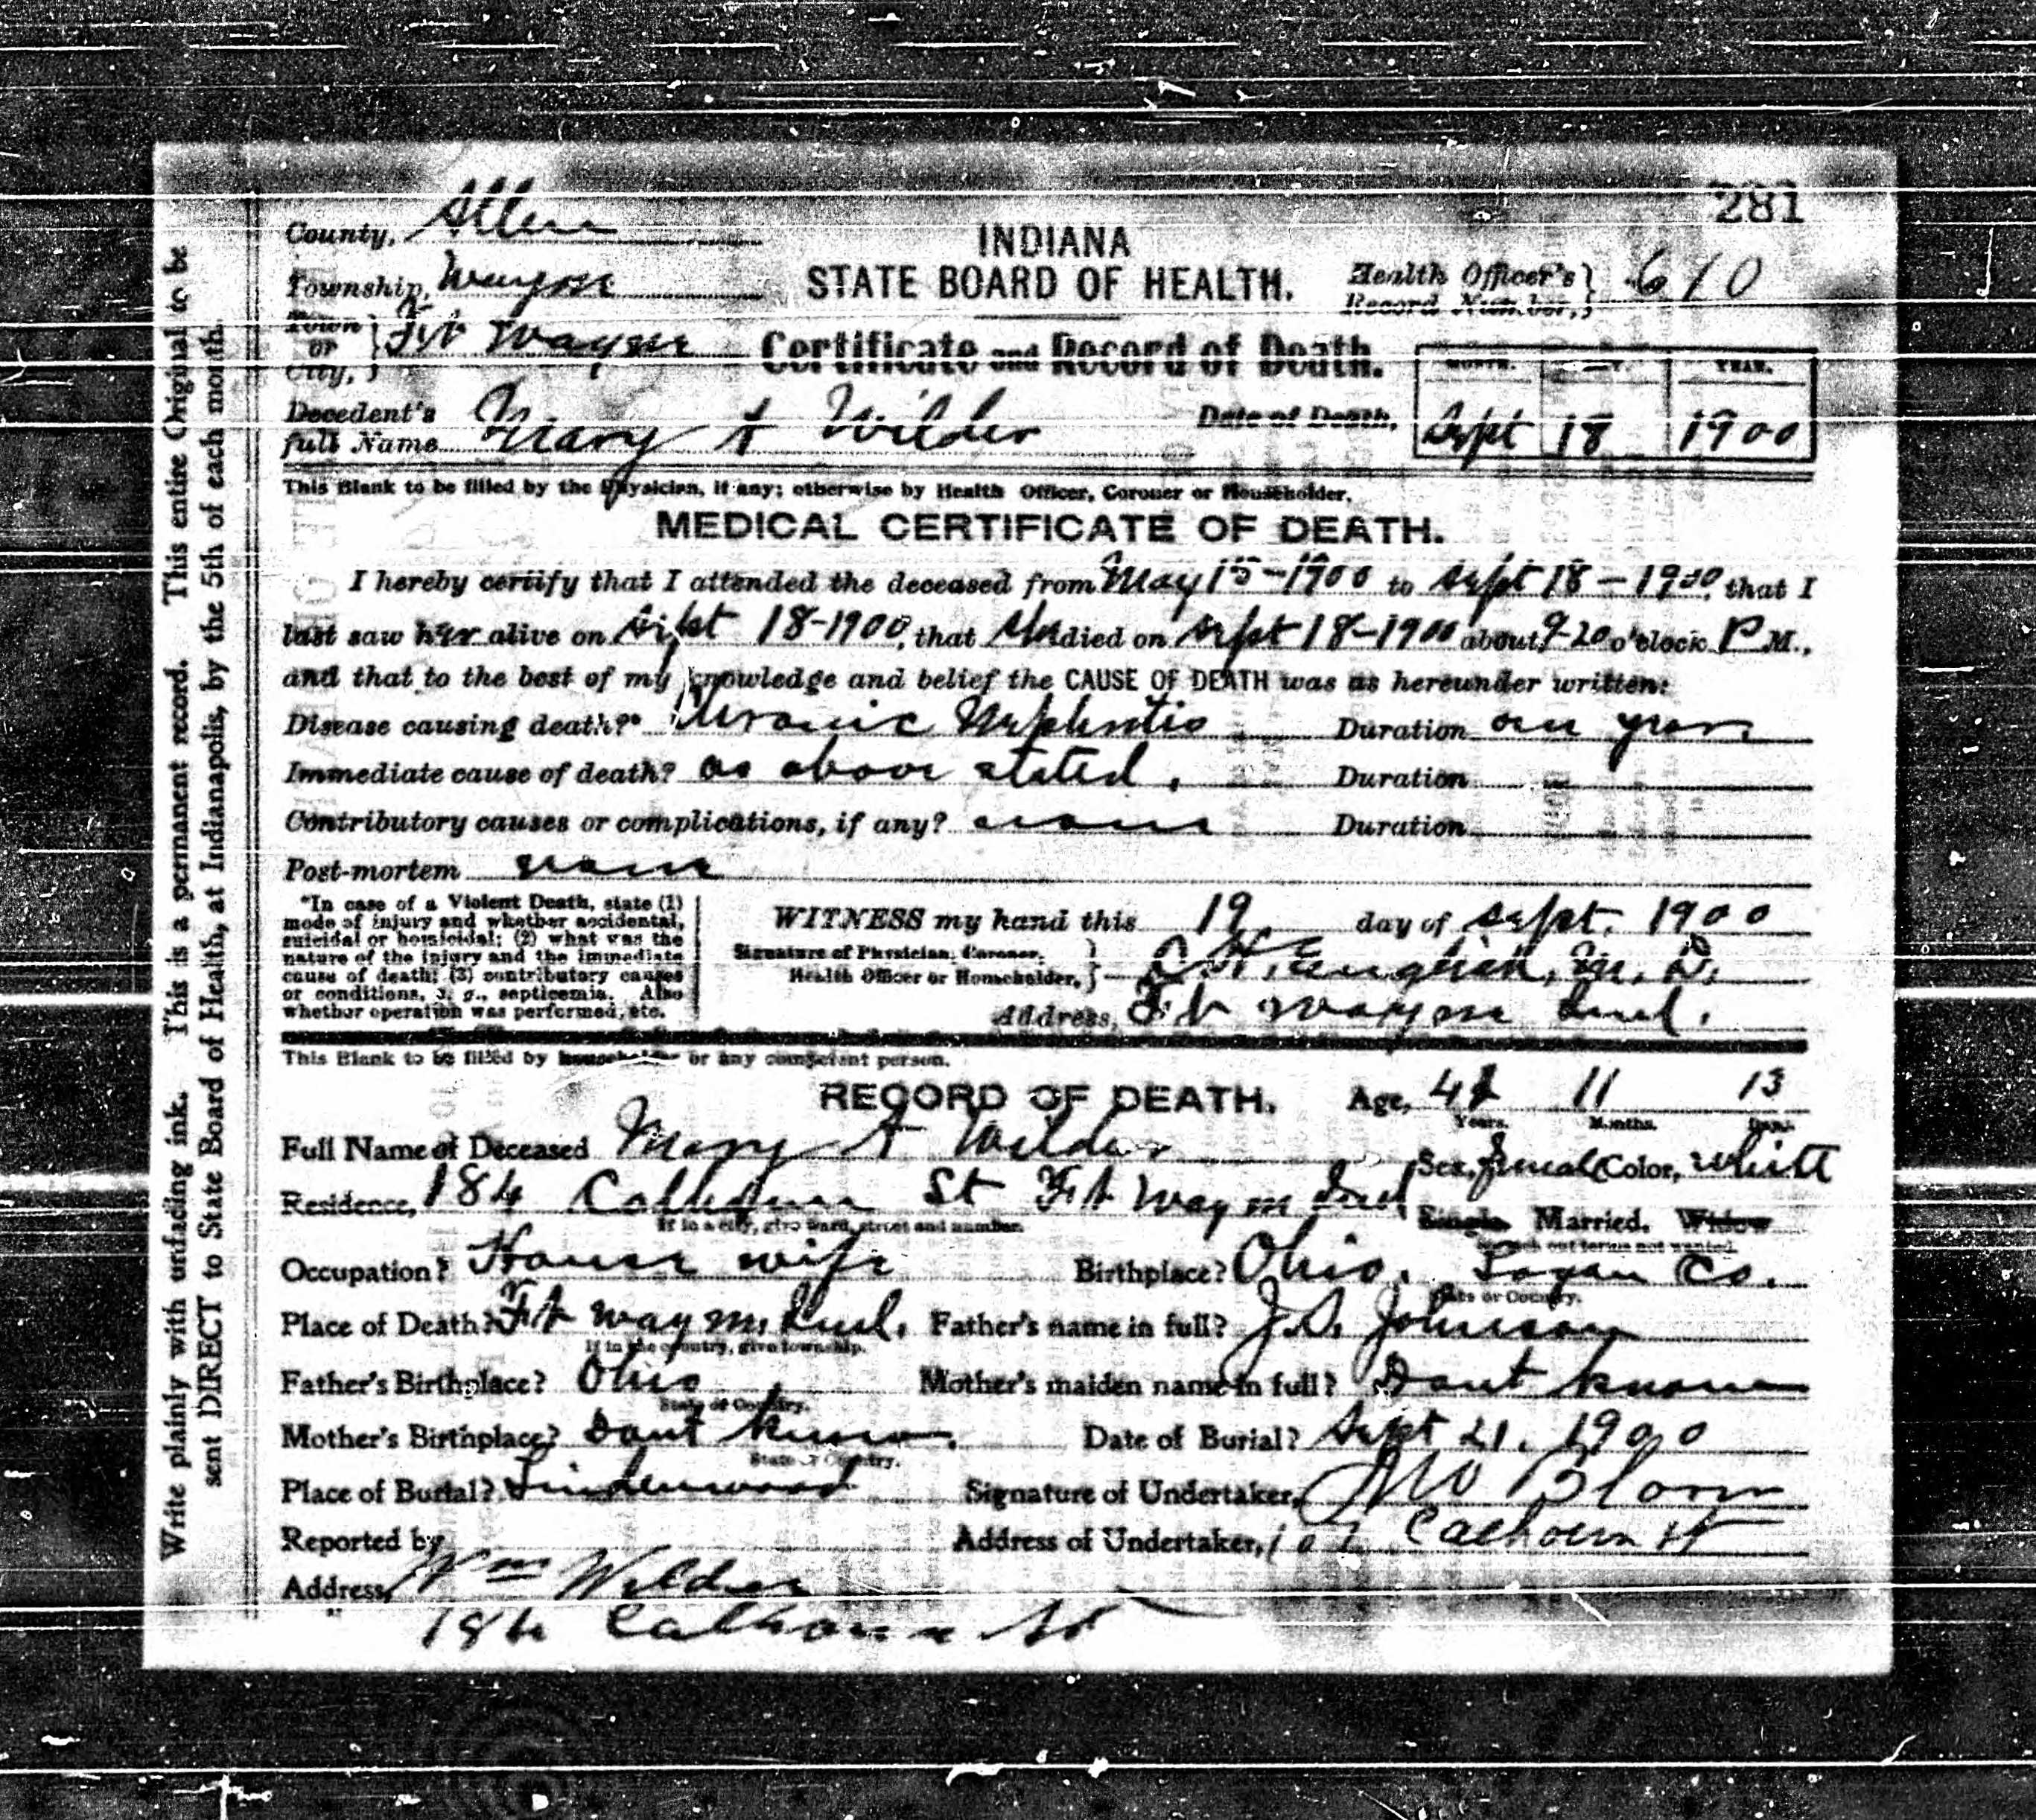 281
County, Allen
INDIANA
Township, Wayne
STATE BOARD OF HEALTH.
Health Officer's Record Number, 610
Town or City, Ft Wayne
Certificate and Record of Death.
MONTH. YEAR.
Decedent's full Name Mary A Wilder
Date of Death, Sept 18 1900
This Blank to be filled by the Physician, if any; otherwise by Health Officer, Coroner or Householder.
MEDICAL CERTIFICATE OF DEATH.
I hereby certify that I attended the deceased from May 15-1900 to Sept 18-1900, that I
last saw her alive on Sept 18-1900, that she died on Sept 18-1900 about 9-20 o'clock P M.,
and that to the best of my knowledge and belief the CAUSE OF DEATH was as hereunder written:
Disease causing death?* Chronic Nephritis Duration one year
Immediate cause of death? as above stated. Duration
Contributory causes or complications, if any? none Duration
Post-mortem none
*In case of a Violent Death, state (1)
mode of injury and whether accidental,
suicidal or homicidal; (2) what was the
nature of the injury and the immediate
cause of death; (3) contributory causes
or conditions, e. g., septicemia. Also
whether operation was performed, etc.
WITNESS my hand this 19 day of Sept. 1900
Signature of Physician, Coroner,
Health Officer or Householder, English, M. D.
Address, Ft Wayne Ind.
This Blank to be filled by householder or any competent person.
RECORD OF DEATH.
Age, 11 13
Years. Months. Days.
Full Name of Deceased Mary A Wilder
Sex, Female Color, White
Residence, 184 Calhoun St Ft Wayne Ind
If in a city, give ward, street and number.
Single. Married. Widow
Scratch out terms not wanted.
Occupation? House wife
Birthplace? Ohio. Logan Co.
State or Country.
Place of Death? Ft Wayne, Ind.
If in the country, give township.
Father's name in full? J. S. Johnson
Father's Birthplace? Ohio
State or Country.
Mother's maiden name in full? Dont know
Mother's Birthplace? Dont know.
State or Country.
Date of Burial? Sept 21. 1900
Place of Burial? Lindenwood
Signature of Undertaker,
Reported by Wm Wilder
Address of Undertaker, Calhoun St
Address, 184 Calhoun St
"
Write plainly with unfading ink. This is a permanent record. This entire Original to be
sent DIRECT to State Board of Health, at Indianapolis, by the 5th of each month.